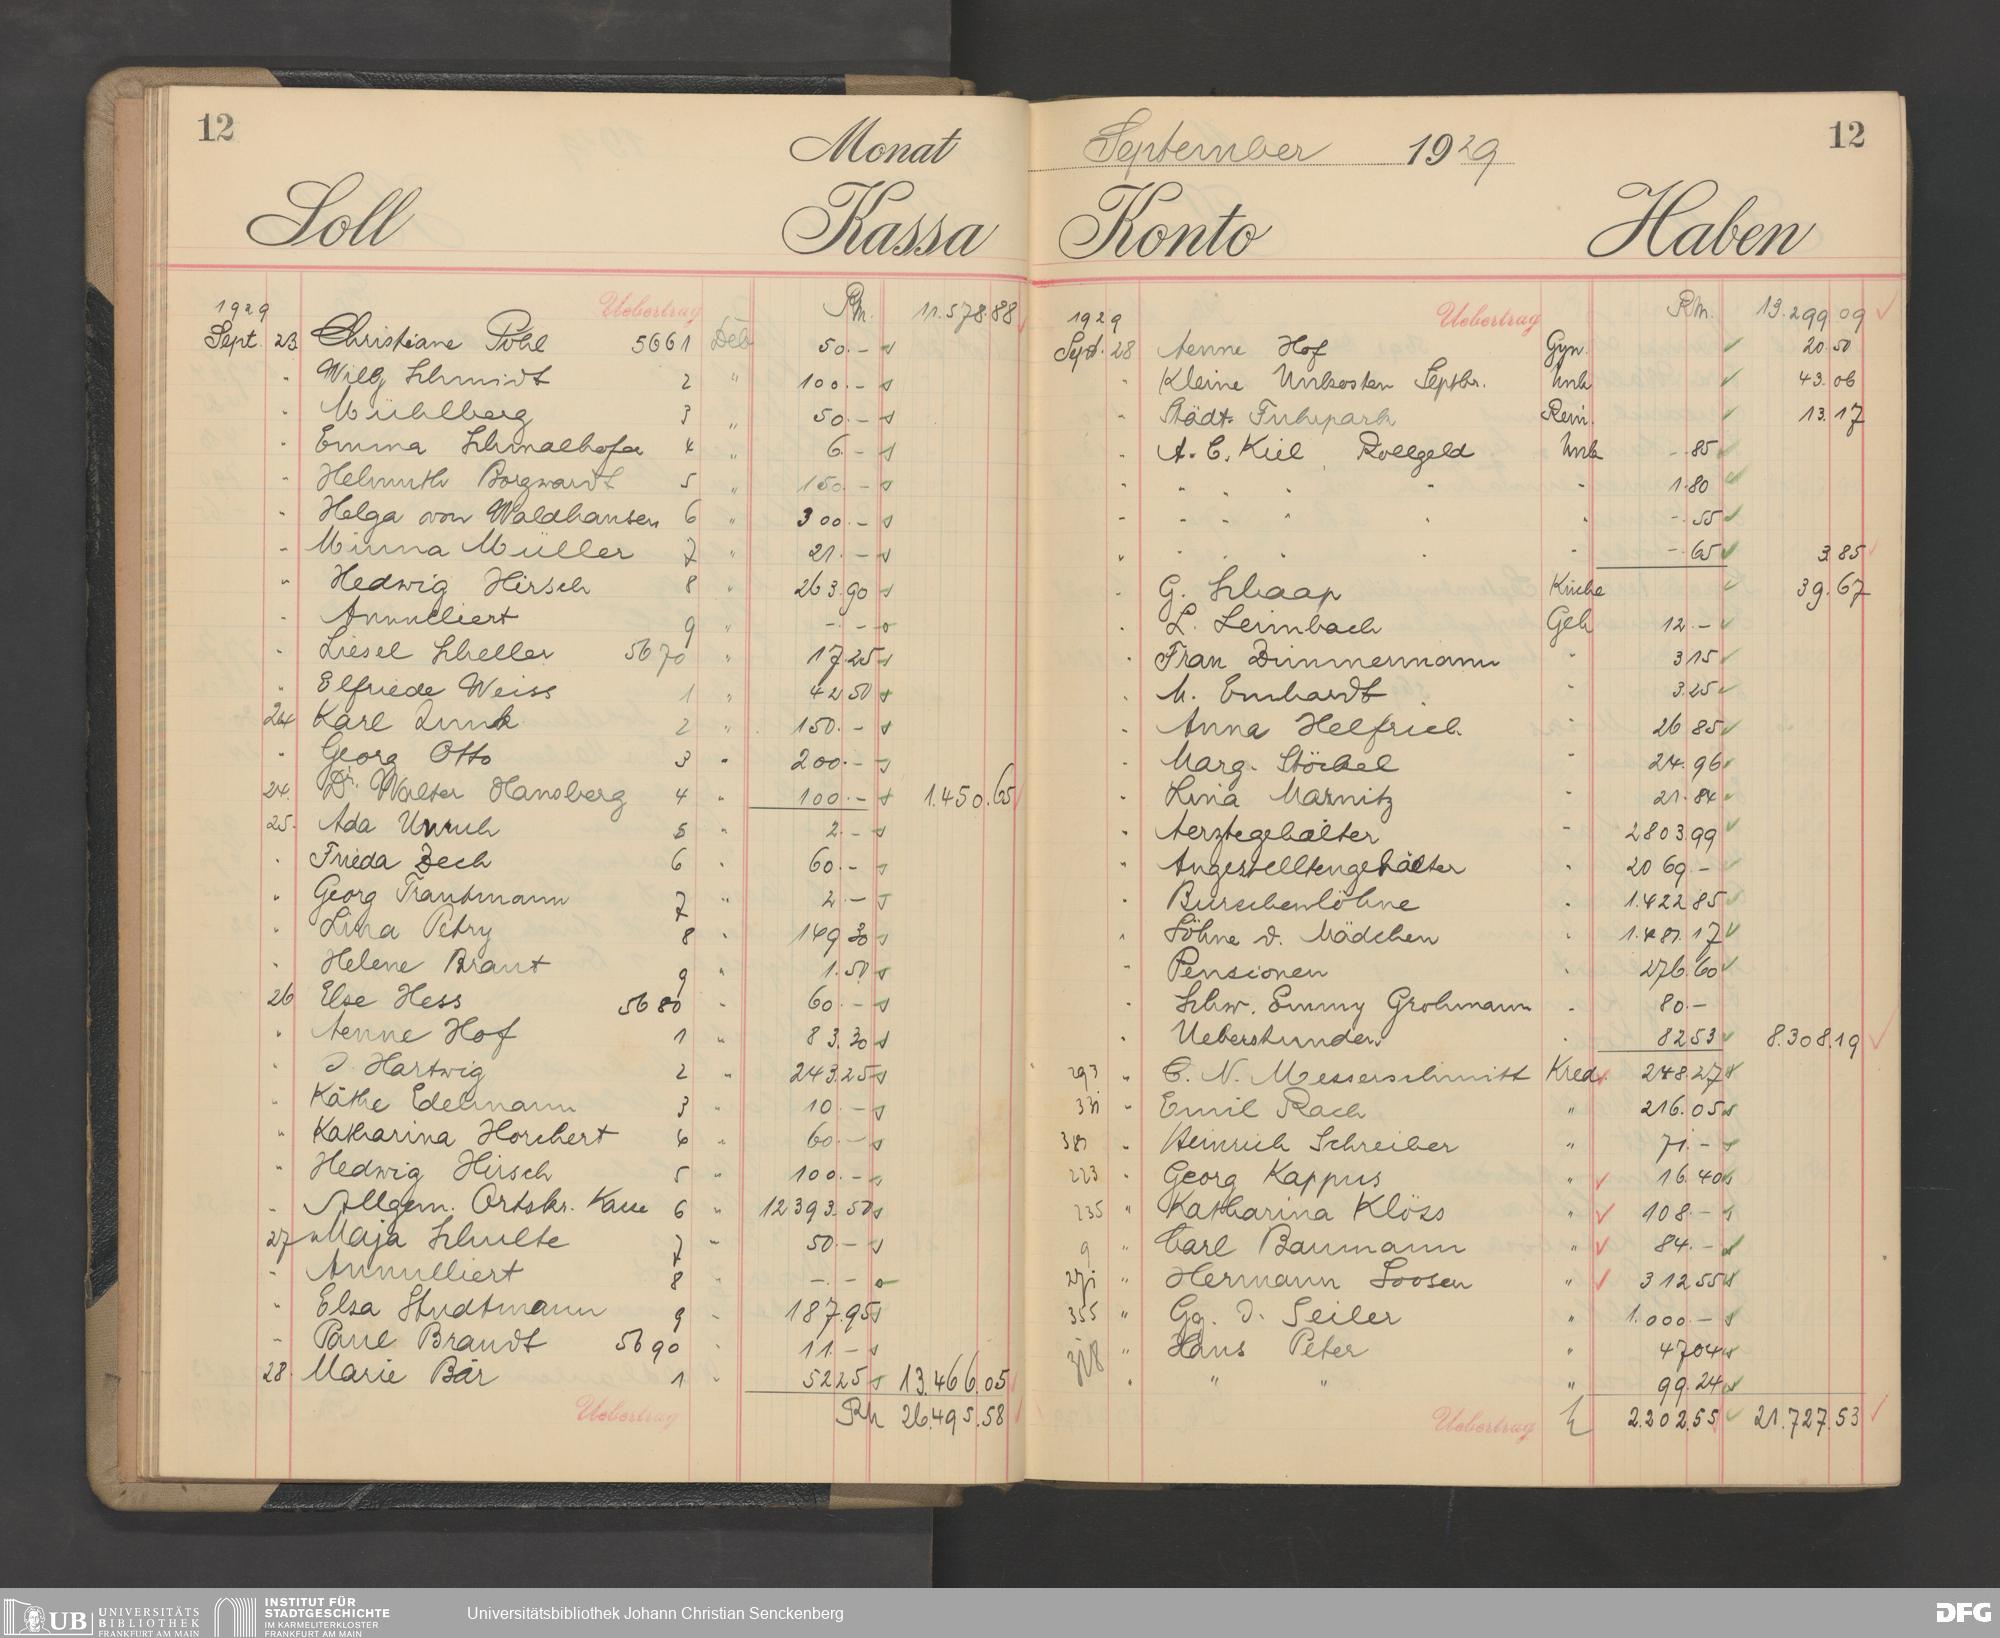 12
Monat
Soll
Kassa
1929
Uebertrag
Rm.
11.578.88
Sept. 23 Christiane Pohl 5661 Deb 50.–
" Willy Schmidt 2 " 100.–
" Mühlberg 3 " 50.–
" Emma Schmalhofer 4 " 6.–
" Helmuth Borgwardt 5 " 150.–
" Helga von Waldhausen 6 " 300.–
" Minna Müller 7 " 21.–
" Hedwig Hirsch 8 " 263.90
" Annulliert 9 " –.–
" Liesel Scheller 5670 " 17.25
" Elfriede Weiss 1 " 42.50
24 Karl Zunk 2 " 150.–
" Georg Otto 3 " 200.–
24. Dr. Walter Hansberg 4 " 100.– 1.450.65
25. Ada Unruh 5 " 2.–
" Frieda Zech 6 " 60.–
" Georg Trautmann 7 " 2.–
" Lina Petry 8 " 149.30
" Helene Braut 9 " 1.50
26 Else Hess 5680 " 60.–
" Aenne Hof 1 " 83.30
" J. Hartwig 2 " 243.25
" Käthe Edelmann 3 " 10.–
" Katharina Horchert 4 " 60.–
" Hedwig Hirsch 5 " 100.–
" Allgem. Ortskr. Kasse 6 " 12393.50
27 Maja Schulte 7 " 50.–
" Annulliert 8 " –.–
" Elsa Studtmann 9 " 187.95
" Paul Brandt 5690 " 11.–
28. Marie Bär 1 " 52.25 13.466.05
Uebertrag Rm 26.495.58
September 1929
12
Konto
Haben
1929
Uebertrag
Rm.
13.299.09
Sept. 28 Aenne Hof Gyn. 20.50
" Kleine Unkosten Septbr. Unk 43.06
" Städt. Fuhrpark Rein. 13.17
" A. C. Kiel, Rollgeld Unk –.85
" " " " " " 1.80
" " " " " " –.55
" " " " " " –.65 3.85
" G. Schaap Küche 39.67
" L. Leimbach Geh 12.–
" Frau Zimmermann " 3.15
" M. Emhardt " 3.25
" Anna Helfrich " 26.85
" Marg. Stöckel " 24.96
" Lina Marnitz " 21.84
" Aerztegehälter " 2803.99
" Angestelltengehälter " 2069.–
" Burschenlöhne " 1.422.85
" Löhne d. Mädchen " 1.481.17
" Pensionen " 276.60
" Schw. Emmy Grohmann " 80.–
" Ueberstunden " 82.53 8.308.19
293 " C. N. Messerschmitt Kred. 248.27
331 " Emil Rach " 216.05
381 " Heinrich Schreiber " 71.–
223 " Georg Kappus " 16.40
235 " Katharina Klöss " 108.–
9 " Carl Baumann " 84.–
271 " Hermann Loosen " 312.55
355 " Gg. J. Seiler " 1.000.–
318 " Hans Peter " 47.04
" " " " 99.24
Uebertrag 2.202.55 21.727.53
UB UNIVERSITÄTS
BIBLIOTHEK
FRANKFURT AM MAIN
INSTITUT FÜR
STADTGESCHICHTE
IM KARMELITERKLOSTER
FRANKFURT AM MAIN
Universitätsbibliothek Johann Christian Senckenberg
DFG